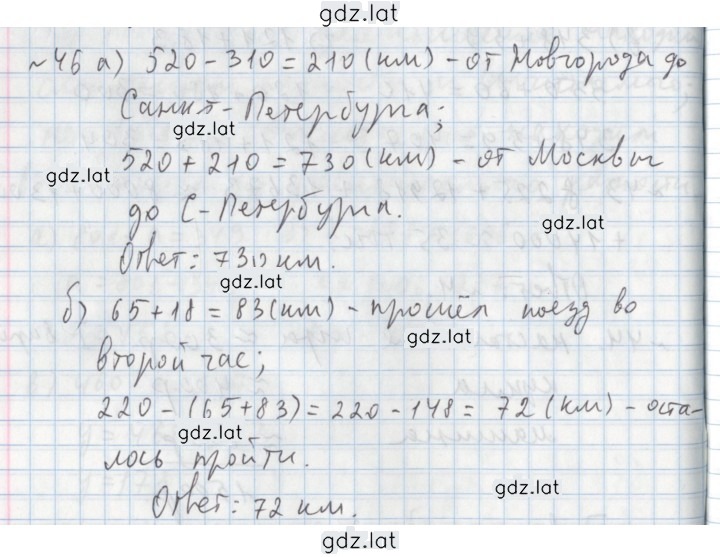 gdz.lat
№46 а) 520-310=210(км) - от Новгорода до
Санкт-Петербурга;
gdz.lat
520+210=730(км) - от Москвы
gdz.lat
до С-Петербурга.
gdz.lat
Ответ: 730 км.
gdz.lat
б) 65+18=83(км) - прошёл поезд во
gdz.lat
второй час;
220-(65+83)=220-148=72(км) - оста-
gdz.lat
лось пройти.
gdz.lat
Ответ: 72 км.
gdz.lat